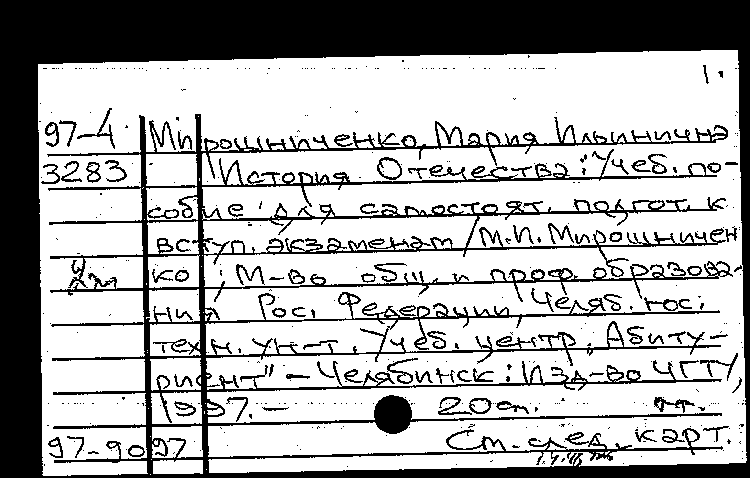 1.
97-4 Мирошниченко, Мария Ильинична
3283 История Отечества: Учеб. по-
собие для самостоят. подгот. к
вступ. экзаменам / М.И. Мирошничен
ко ; М-во общ. и проф. образова-
ния Рос. Федерации, Челяб. гос.
техн. ун-т. Учеб. центр „Абиту-
риент" - Челябинск: Изд-во ЧГТУ,
1997. - 20 см.
97-9097 См. след. карт.